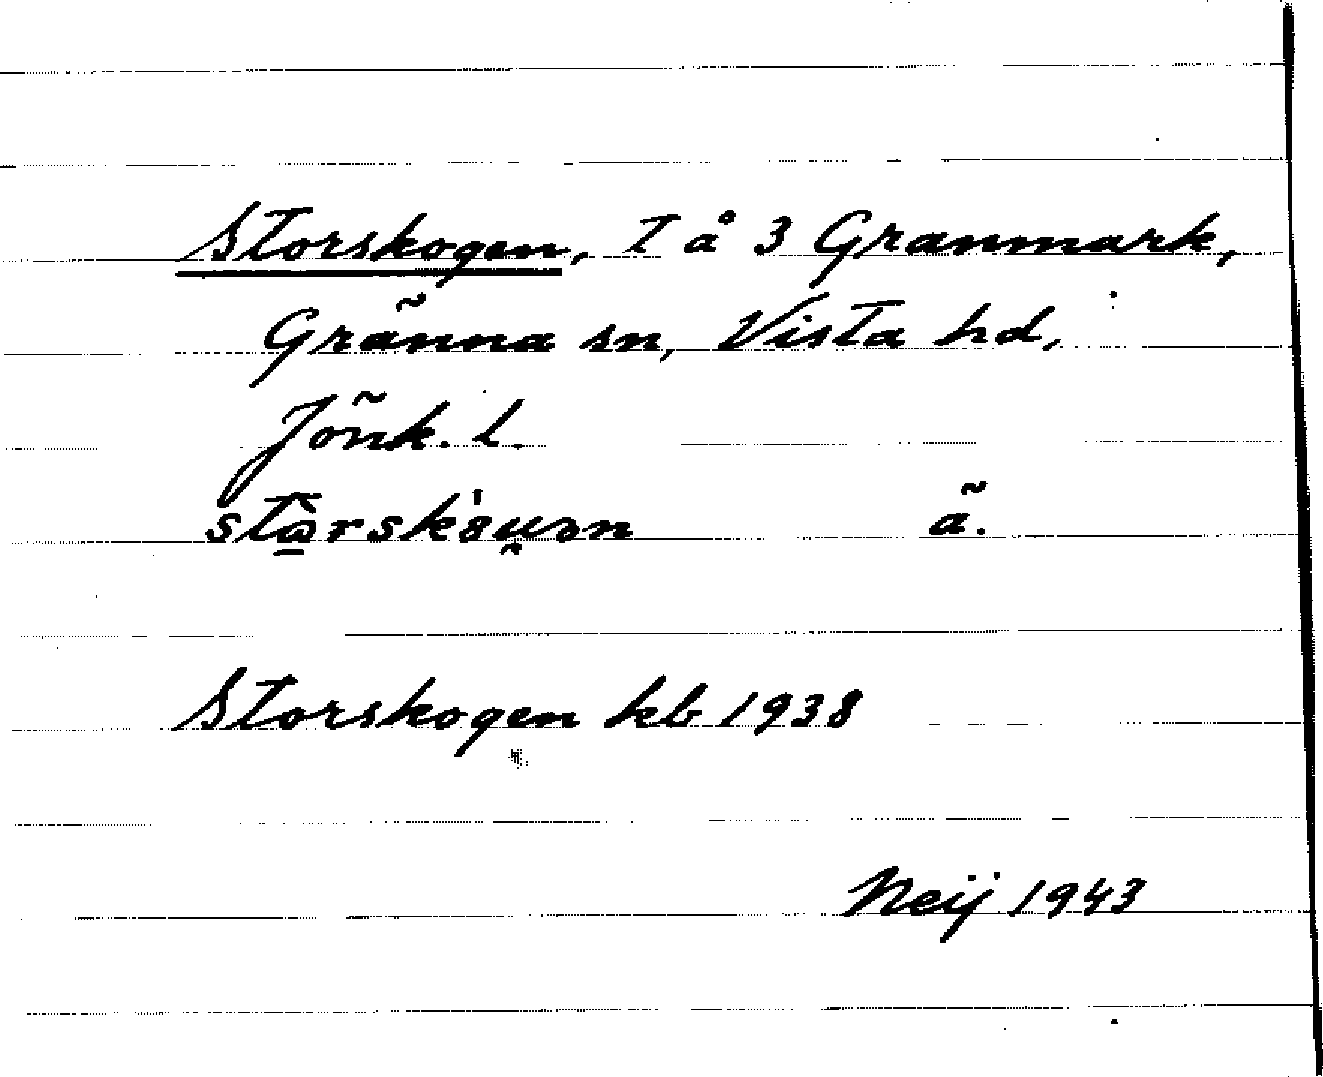 Storskogen, T å 3 Granmark,
Gränna sn, Vista hd,
Jönk. l.
ä.
Storskogen kb 1938
Neij 1943